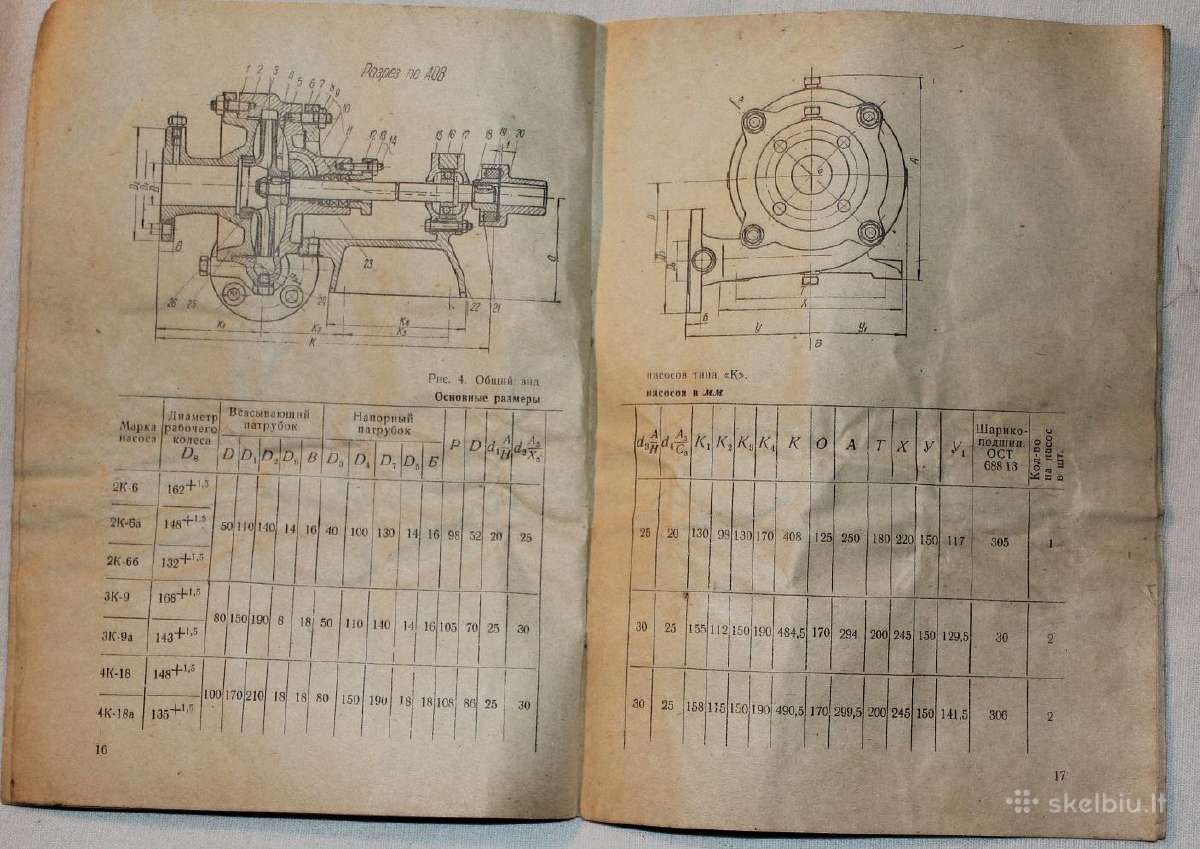 Разрез по АОВ
1 2 3 4 5 6 7 8 9
10
11 12 13 14 15 16 17 18 19 20
26 25 24 23 22 21
K₁ K₂ K₃ K₄
K
O
Рис. 4. Общий вид
Основные размеры
Марка насоса
Диаметр рабочего колеса D₈
Всасывающий патрубок
Напорный патрубок
D D₁ D₂ B
D₃ D₄ D₇ D₅ Б
P D
2К-6 162+1,5
2К-6а 148+1,5 50 110 140 14 16 40 100 130 14 16 98 52 20 25
2К-6б 132+1,5
3К-9 168+1,5
3К-9а 143+1,5 80 150 190 8 18 50 110 140 14 16 105 70 25 30
4К-18 148+1,5
4К-18а 135+1,5 100 170 210 18 18 80 150 190 18 18 108 86 25 30
16
A
P
T
X
Б
У У₁
В
насосов типа «К».
насосов в мм
K₁ K₂ K₃ K₄ K O A T X У У₁
Шарико-
подшип.
ОСТ
688 13
Кол-во
на насос
в шт.
25 20 130 99 130 170 408 125 250 180 220 150 117 305 1
30 25 155 112 150 190 484,5 170 294 200 245 150 129,5 30 2
30 25 158 115 150 190 490,5 170 299,5 200 245 150 141,5 306 2
17
skelbiu.lt